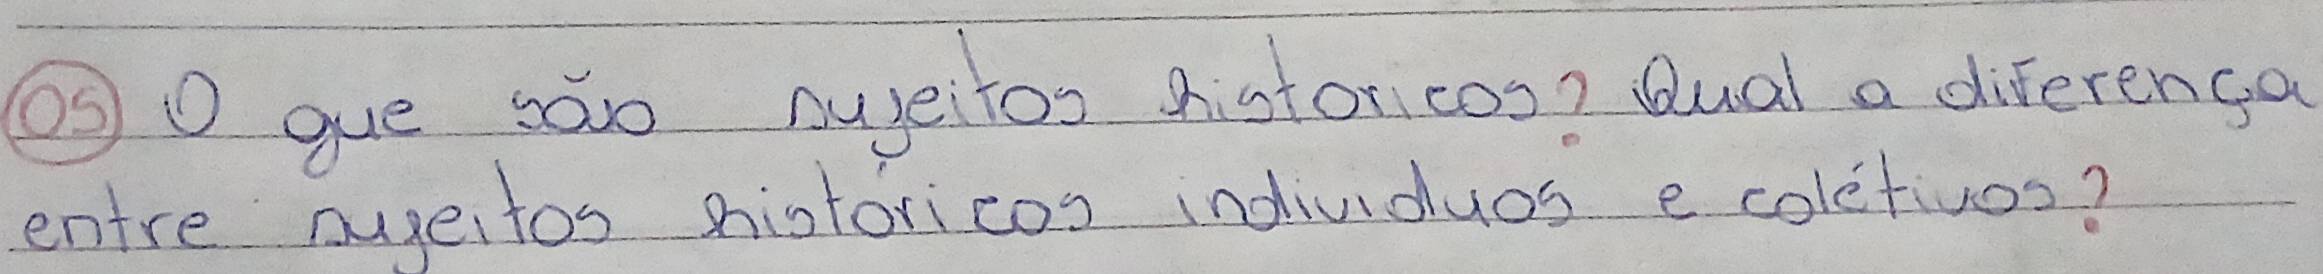 05 O que são sujeitos historicos? Qual a diferença
entre sujeitos históricos individuos e colétivos?